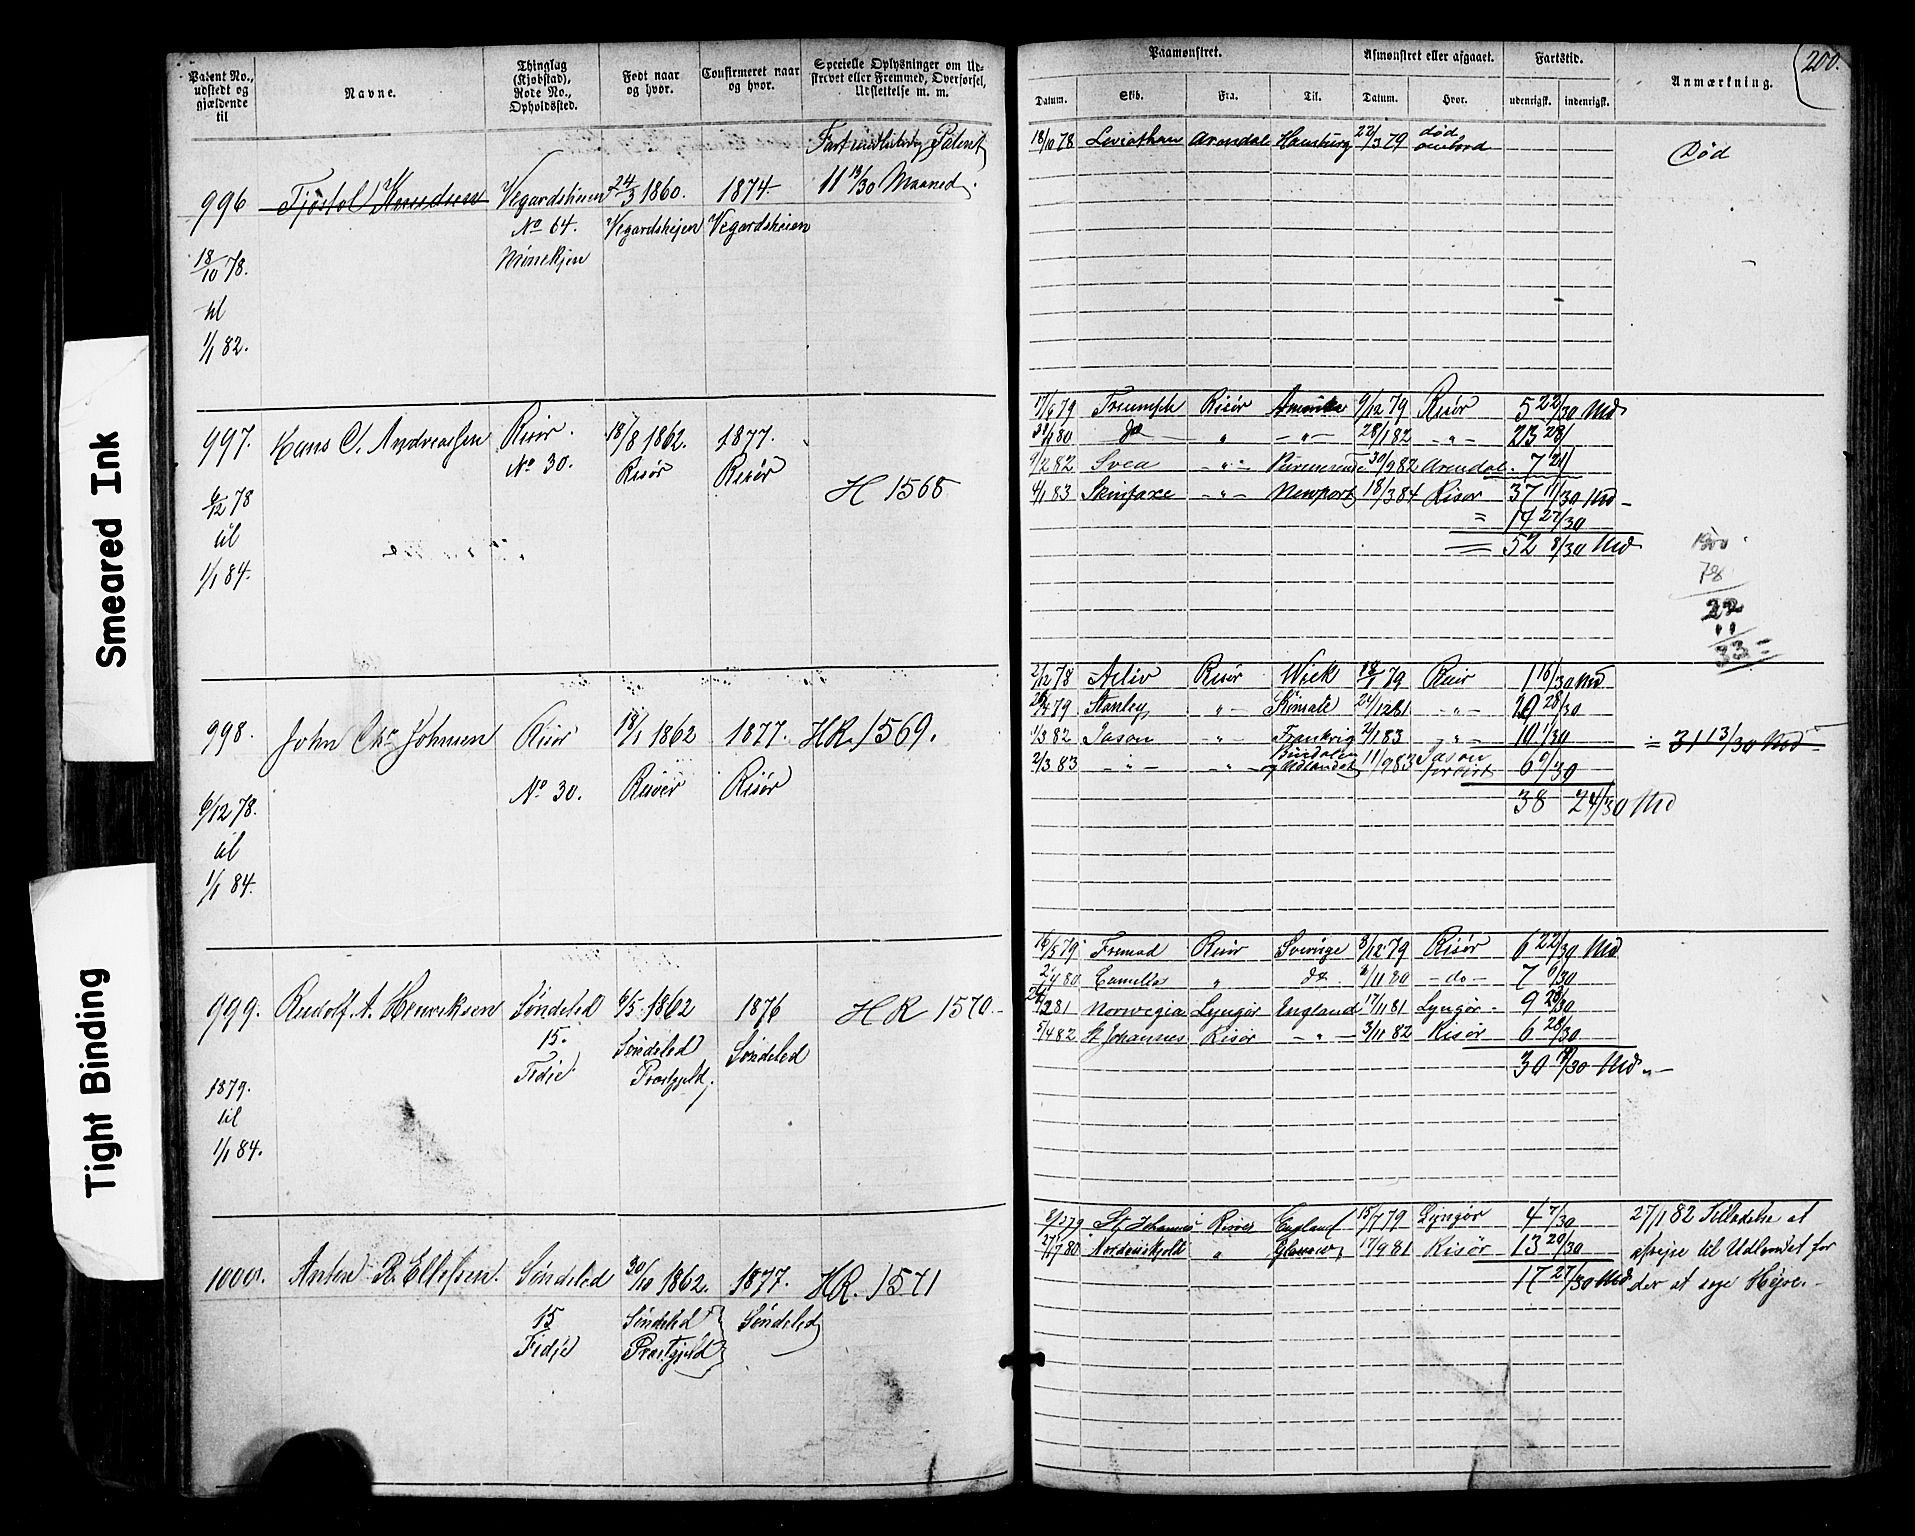 Smeared Ink
Tight Binding
200.
Patent No., udstedt og gjældende til
Navne.
Thinglag (Kjøbstad), Rode No., Opholdssted.
Født naar og hvor.
Confirmeret naar og hvor.
Specielle Oplysninger om Udskrevet eller Fremmed, Overførsel, Udslettelse m. m.
Paamønstret.
Datum.
Skib.
Fra.
Til.
Afmønstret eller afgaaet.
Datum.
Hvor.
Fartstid.
udenrigsk.
indenrigsk.
Anmærkning.
996
18/10 78.
til
1/1 82.
Tjöstol Knudsen
Vegardsheien
No 64.
24/3 1860.
Vegardshejen
1874
Vegardsheien
Patent
11 13/30 Maaned.
18/10 78 Leviathan Arendal Hamburg 22/3 79 død ombord
Død
997.
6/12 78
til
1/1 84.
Hans C. Andreassen
Risør.
No 30.
18/8 1862.
Risør
1877.
Risør
H 1568
79 Triumph Risør Amerika 9/12 79 Risør 5 22/30 Md
80 do „ - „ - 28/1 82 - „ - 23 28/
9/2 82 Svea - „ - 30/9 82 Arendal. 7 21/
4/1 83 Skinfaxe - „ - Newport 18/3 84 Risør 37 11/30 Md
= 14 27/30
= 52 8/30 Md
78
22
11
33 =
998.
6/12 78.
til
1/1 84.
John Chr. Johnsen
Risør
No 30.
18/1 1862
Risøer
1877.
Risør
HR. 1569.
2/12 78 Activ Risør Wick 18/1 79 Risør 1 16/30 Md
79 Stanley „ - Kinsale 24/12 81 - „ - 20 28/30
1/3 82 Jason - „ - Frankrig 2/1 83 - „ - 10 1/30
= 31 13/30 Md
2/3 83 - „ - - „ - og Udlandet 11/9 83 Jason forlist 6 9/30
38 24/30 Md
999.
1879.
til
1/1 84.
Rudolf A. Henriksen
Søndeled
15.
Fidje
6/5 1862
Søndeled
Præstgjeld
1876
Søndeled
HR 1570
16/5 79 Fremad Risør Sverige 8/12 79 Risør 6 22/30 Md
2/4 80 Camilla „ do. 8/11 80 - do - 7 6/30
81 Norwegia Lyngør England 17/11 81 Lyngør 9 23/30
5/4 82 St Johannes Risør - „ - 3/11 82 Risør 6 28/30
30 19/30 Md.
1000.
Anton R. Ellefsen.
Søndeled
15
Fidje
30/10 1862.
Søndeled
Præstgjeld
1877.
Søndeled
HR. 1571
79 St. Johannes Risøer England 15/7 79 Lyngør 4 7/30
80 Nordenskjold „ Glasgow 17/9 81 Risør 13 20/30
17 27/30 Md.
27/1 82 Tilladelse at
afrejse til Udlandet for
der at søge Hyre.